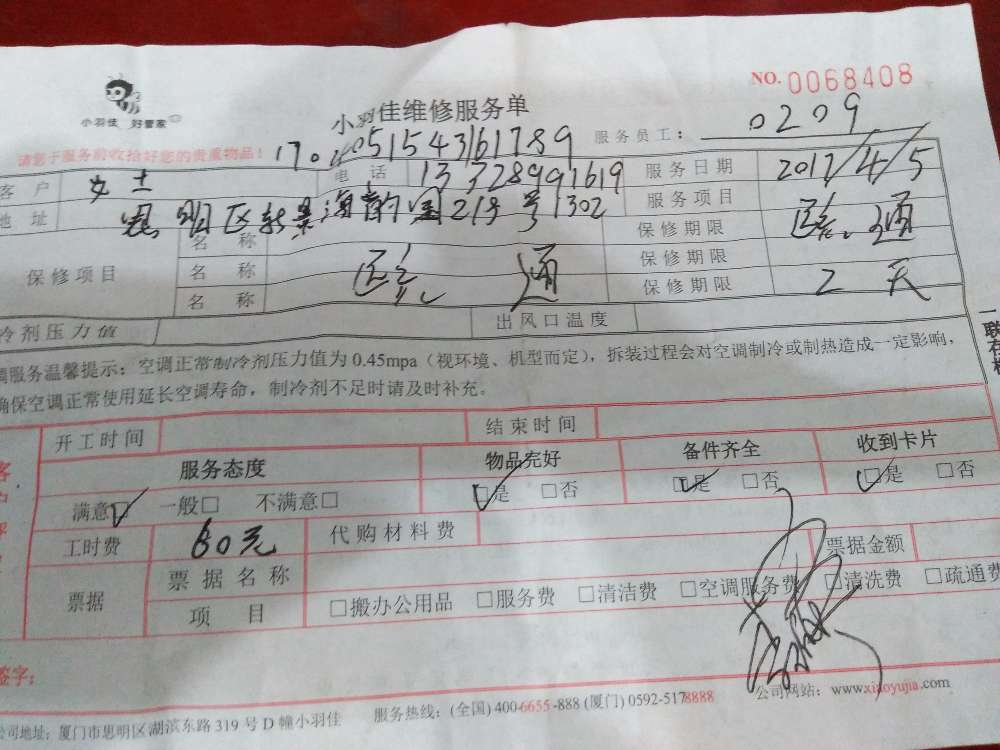 NO. 0068408
小羽佳 好管家
小羽佳维修服务单
服务员工： 0209
请您于服务前收拾好您的贵重物品！
客户 女士 电话 13328991619 服务日期 2017/4/5
地址 思明区 219号1302 服务项目 通
保修项目 名称 保修期限
名称 通 保修期限
名称 保修期限 2天
冷剂压力值 出风口温度
调服务温馨提示：空调正常制冷剂压力值为 0.45mpa（视环境、机型而定），拆装过程会对空调制冷或制热造成一定影响，
确保空调正常使用延长空调寿命，制冷剂不足时请及时补充。
一联存根
开工时间 结束时间
服务态度 物品完好 备件齐全 收到卡片
满意□ 一般□ 不满意□ □是 □否 □是 □否 □是 □否
工时费 80元 代购材料费 票据金额
票据 票据名称
项目 □搬办公用品 □服务费 □清洁费 □空调服务费 □清洗费 □疏通费
签字：
公司地址：厦门市思明区湖滨东路 319 号 D 幢小羽佳 服务热线：(全国) 400-6655-888 (厦门) 0592-5178888 公司网站：www.xiaoyujia.com